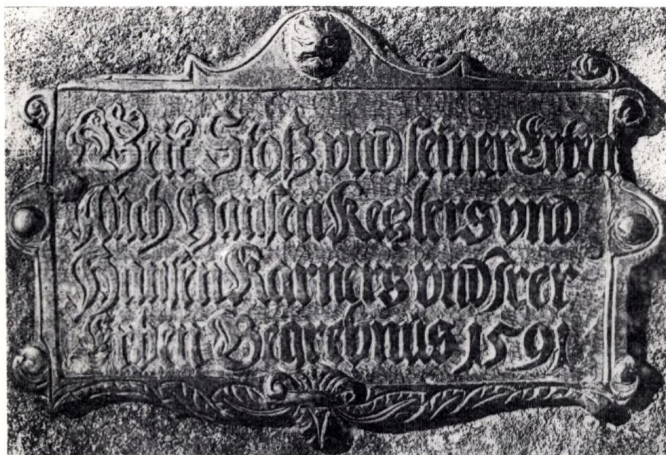 Veit Stoß vnd seiner Erben
Auch Hansen Keßlers vnd
Hansen Karners vnd Irer
Erben Begrebnus 1591